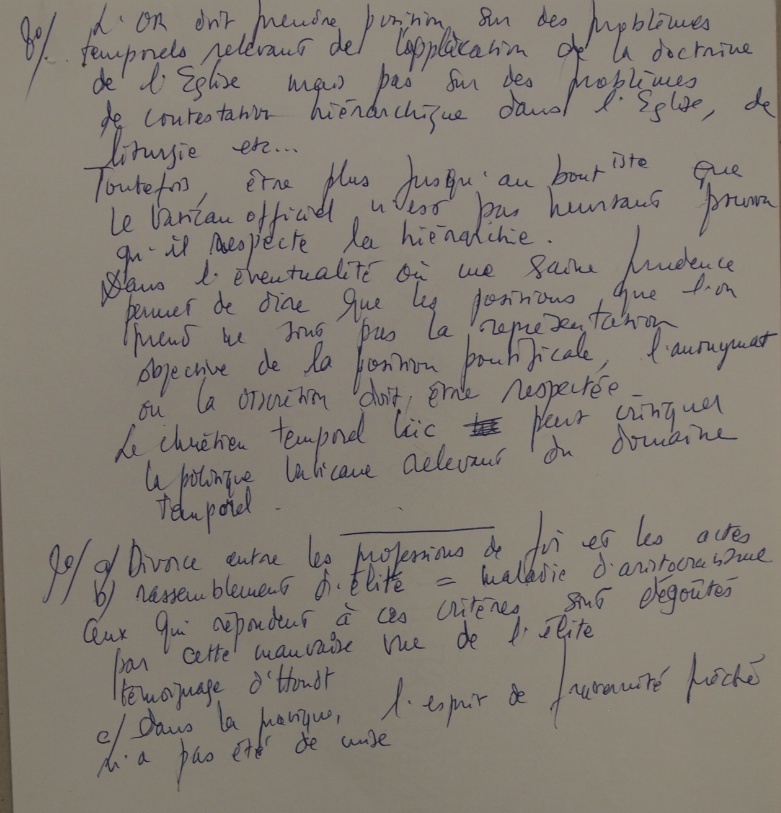 8°/ L'OR doit prendre position sur des problèmes
temporels relevant de l'application de la doctrine
de l'Eglise mais pas sur des problèmes
de contestation hiérarchique dans l'Eglise, de
liturgie etc...
Toutefois, être plus jusqu'au boutiste que
le Vatican officiel n'est pas heurtant pourvu
qu'il respecte la hiérarchie.
Dans l'éventualité où une saine prudence
permet de dire que les positions que l'on
prend ne sont pas la représentation
objective de la position pontificale, l'anonymat
ou la discrétion doit, être respectée
Le chrétien temporel laïc peut critiquer
la politique vaticane relevant du domaine
temporel.
9°/ a) Divorce entre les professions de foi et les actes
b) rassemblement d'élite = maladie d'aristocratisme
Ceux qui répondent à ces critères sont dégoûtés
par cette mauvaise vue de l'élite
témoignage d'
c/ Dans la pratique, l'esprit de fraternité prêché
n'a pas été de mise